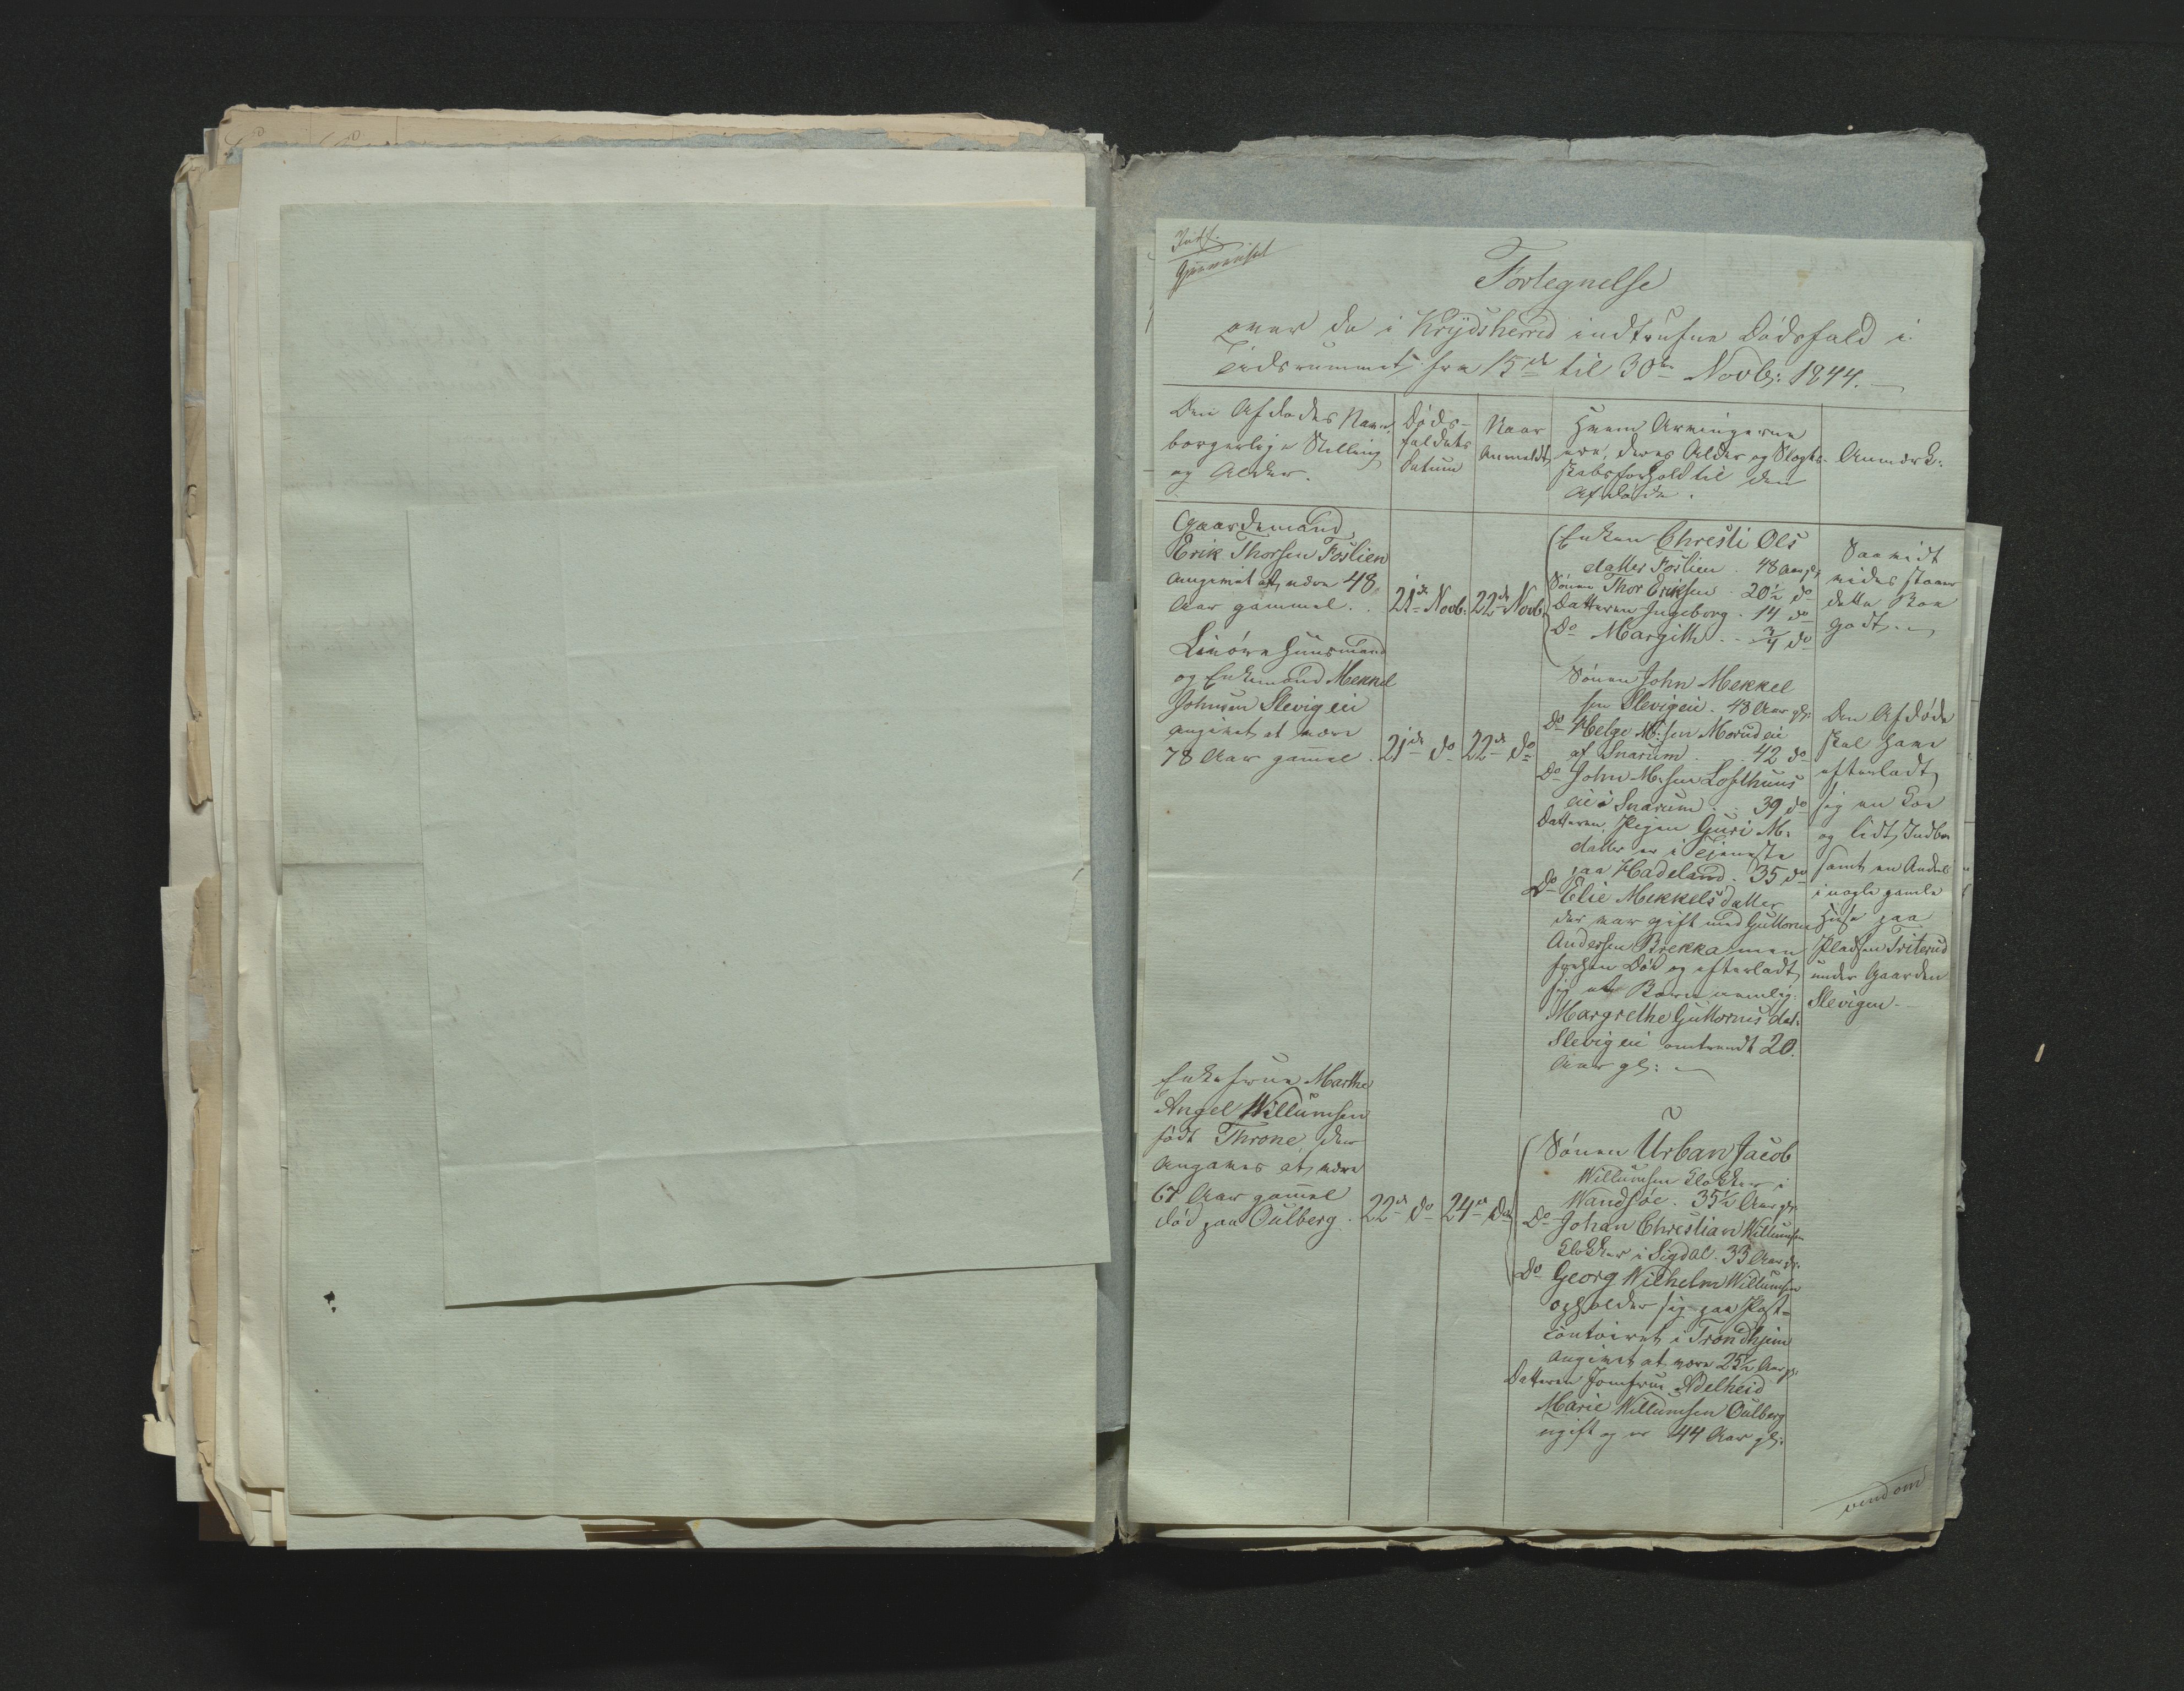 Indf.
Fortegnelse
over de i Krydsherred indtrufne Dødsfald i
Tidsrummet fra 15de til 30te Novbr: 1844.
Den Afdødes Navn,
borgerlige Stilling
og Alder.
Døds-
faldets
Datum
Naar
Anmeldt
Hvem Arvingerne
ere, deres Alder og Slægt-
skabsforhold til den
Afdøde.
Anmærk:
Gaardmand
Erik Thorsen Foslien
angivet at være 48
Aar gammel.
21de Novb:
22de Novb:
Enken Christi Ols
datter Foslien . 48 Aar gl:
Sønen Thor Eriksen . 20½ do
Datteren Ingeborg . 14 do
Do Margith . . ¾ do
Saavidt
vides staaer
dette Boe
godt.
Huusmand
og Enkemand Mekkel
Johnsen Slevigeie
angivet at være
78 Aar gammel .
21de do
22de do
Sønen John Mekkel
sen Slevigeie . 43 Aar gl:
Do Helge M:sen Morudeie
af Snarum . . 42 do
Do John M:sen Lofthuus
eie i Snarum . . 39 do
Datteren, Pigen Guri M:
datter er i Tjeneste
paa Hadeland . 35 do
Do Elie Mekkelsdatter
der var gift med Guttorm
Andersen Brekka men
forhen Død og efterladt
sig et Barn nemlig:
Margrethe Guttorms dat:
Slevigeie omtrendt 20.
Aar gl:
Den Afdøde
skal have
efterladt
sig en Koe
og lidt Indboe
samt en Andeel
i nogle gamle
Huse paa
Pladsen Triterud
under Gaarden
Slevigen.
Enkefrue Marthe
Angel Willumsen
født Throne, der
angaves at være
67 Aar gammel
død paa Oulberg .
22de do
24de do
Sønen Urban Jacob
Willumsen Klokker i
Wandsøe . 35½ Aar gl:
Do Johan Christian Willumsen
Klokker i Sigdal . 33 Aar gl:
Do Georg Wilhelm Willumsen
opholder sig paa Post-
contoiret i Trondhjem
angivet at være 25½ Aar gl:
Datteren Jomfrue Adelheid
Marie Willumsen Oulberg
ugift og er 44 Aar gl:
vend om